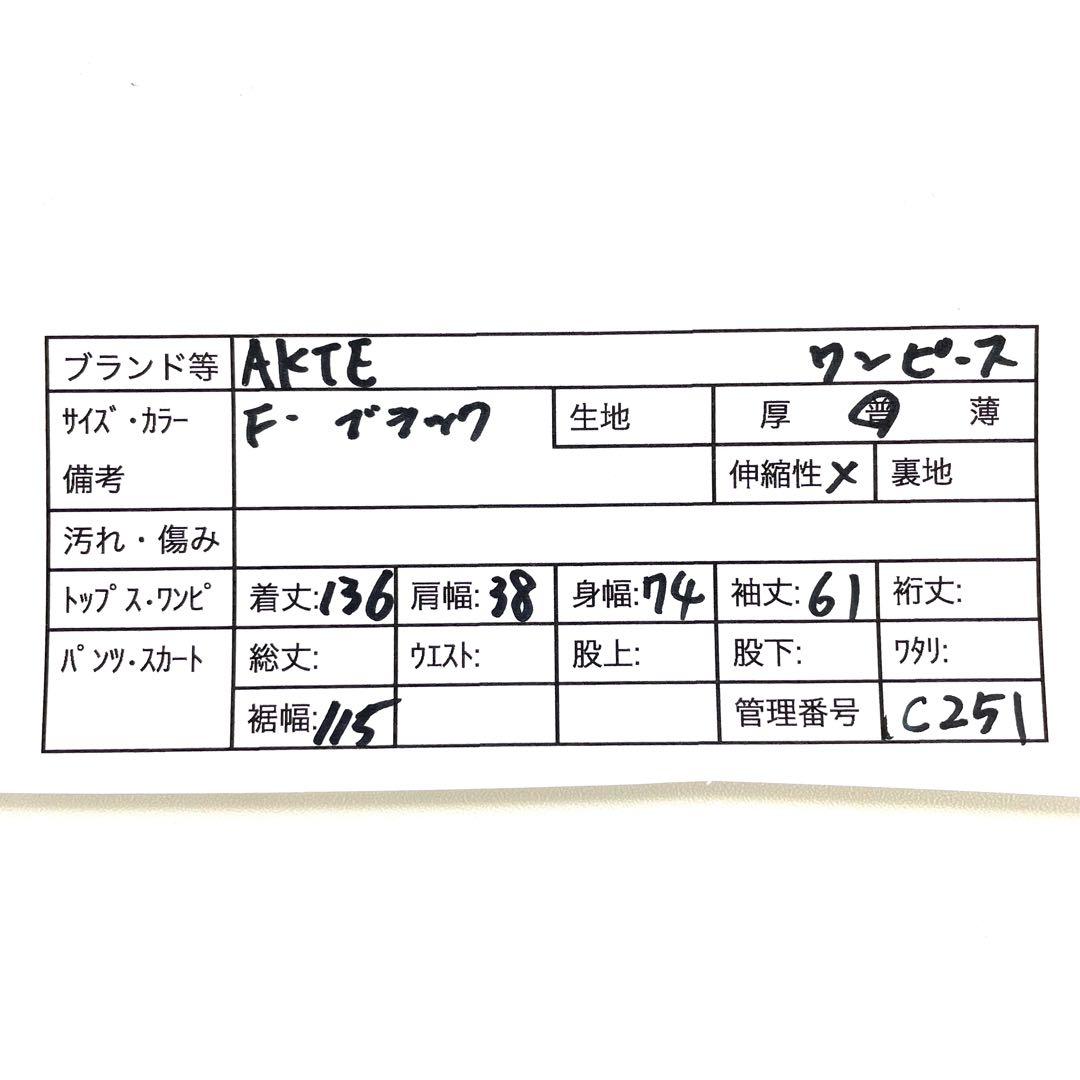 ブランド等 AKTE ワンピース
サイズ・カラー F- ブラック 生地 厚 普 薄
備考 伸縮性× 裏地
汚れ・傷み
トップス・ワンピ 着丈:136 肩幅:38 身幅:74 袖丈:61 裄丈:
パンツ・スカート 総丈: ウエスト: 股上: 股下: ワタリ:
裾幅:115 管理番号 C251